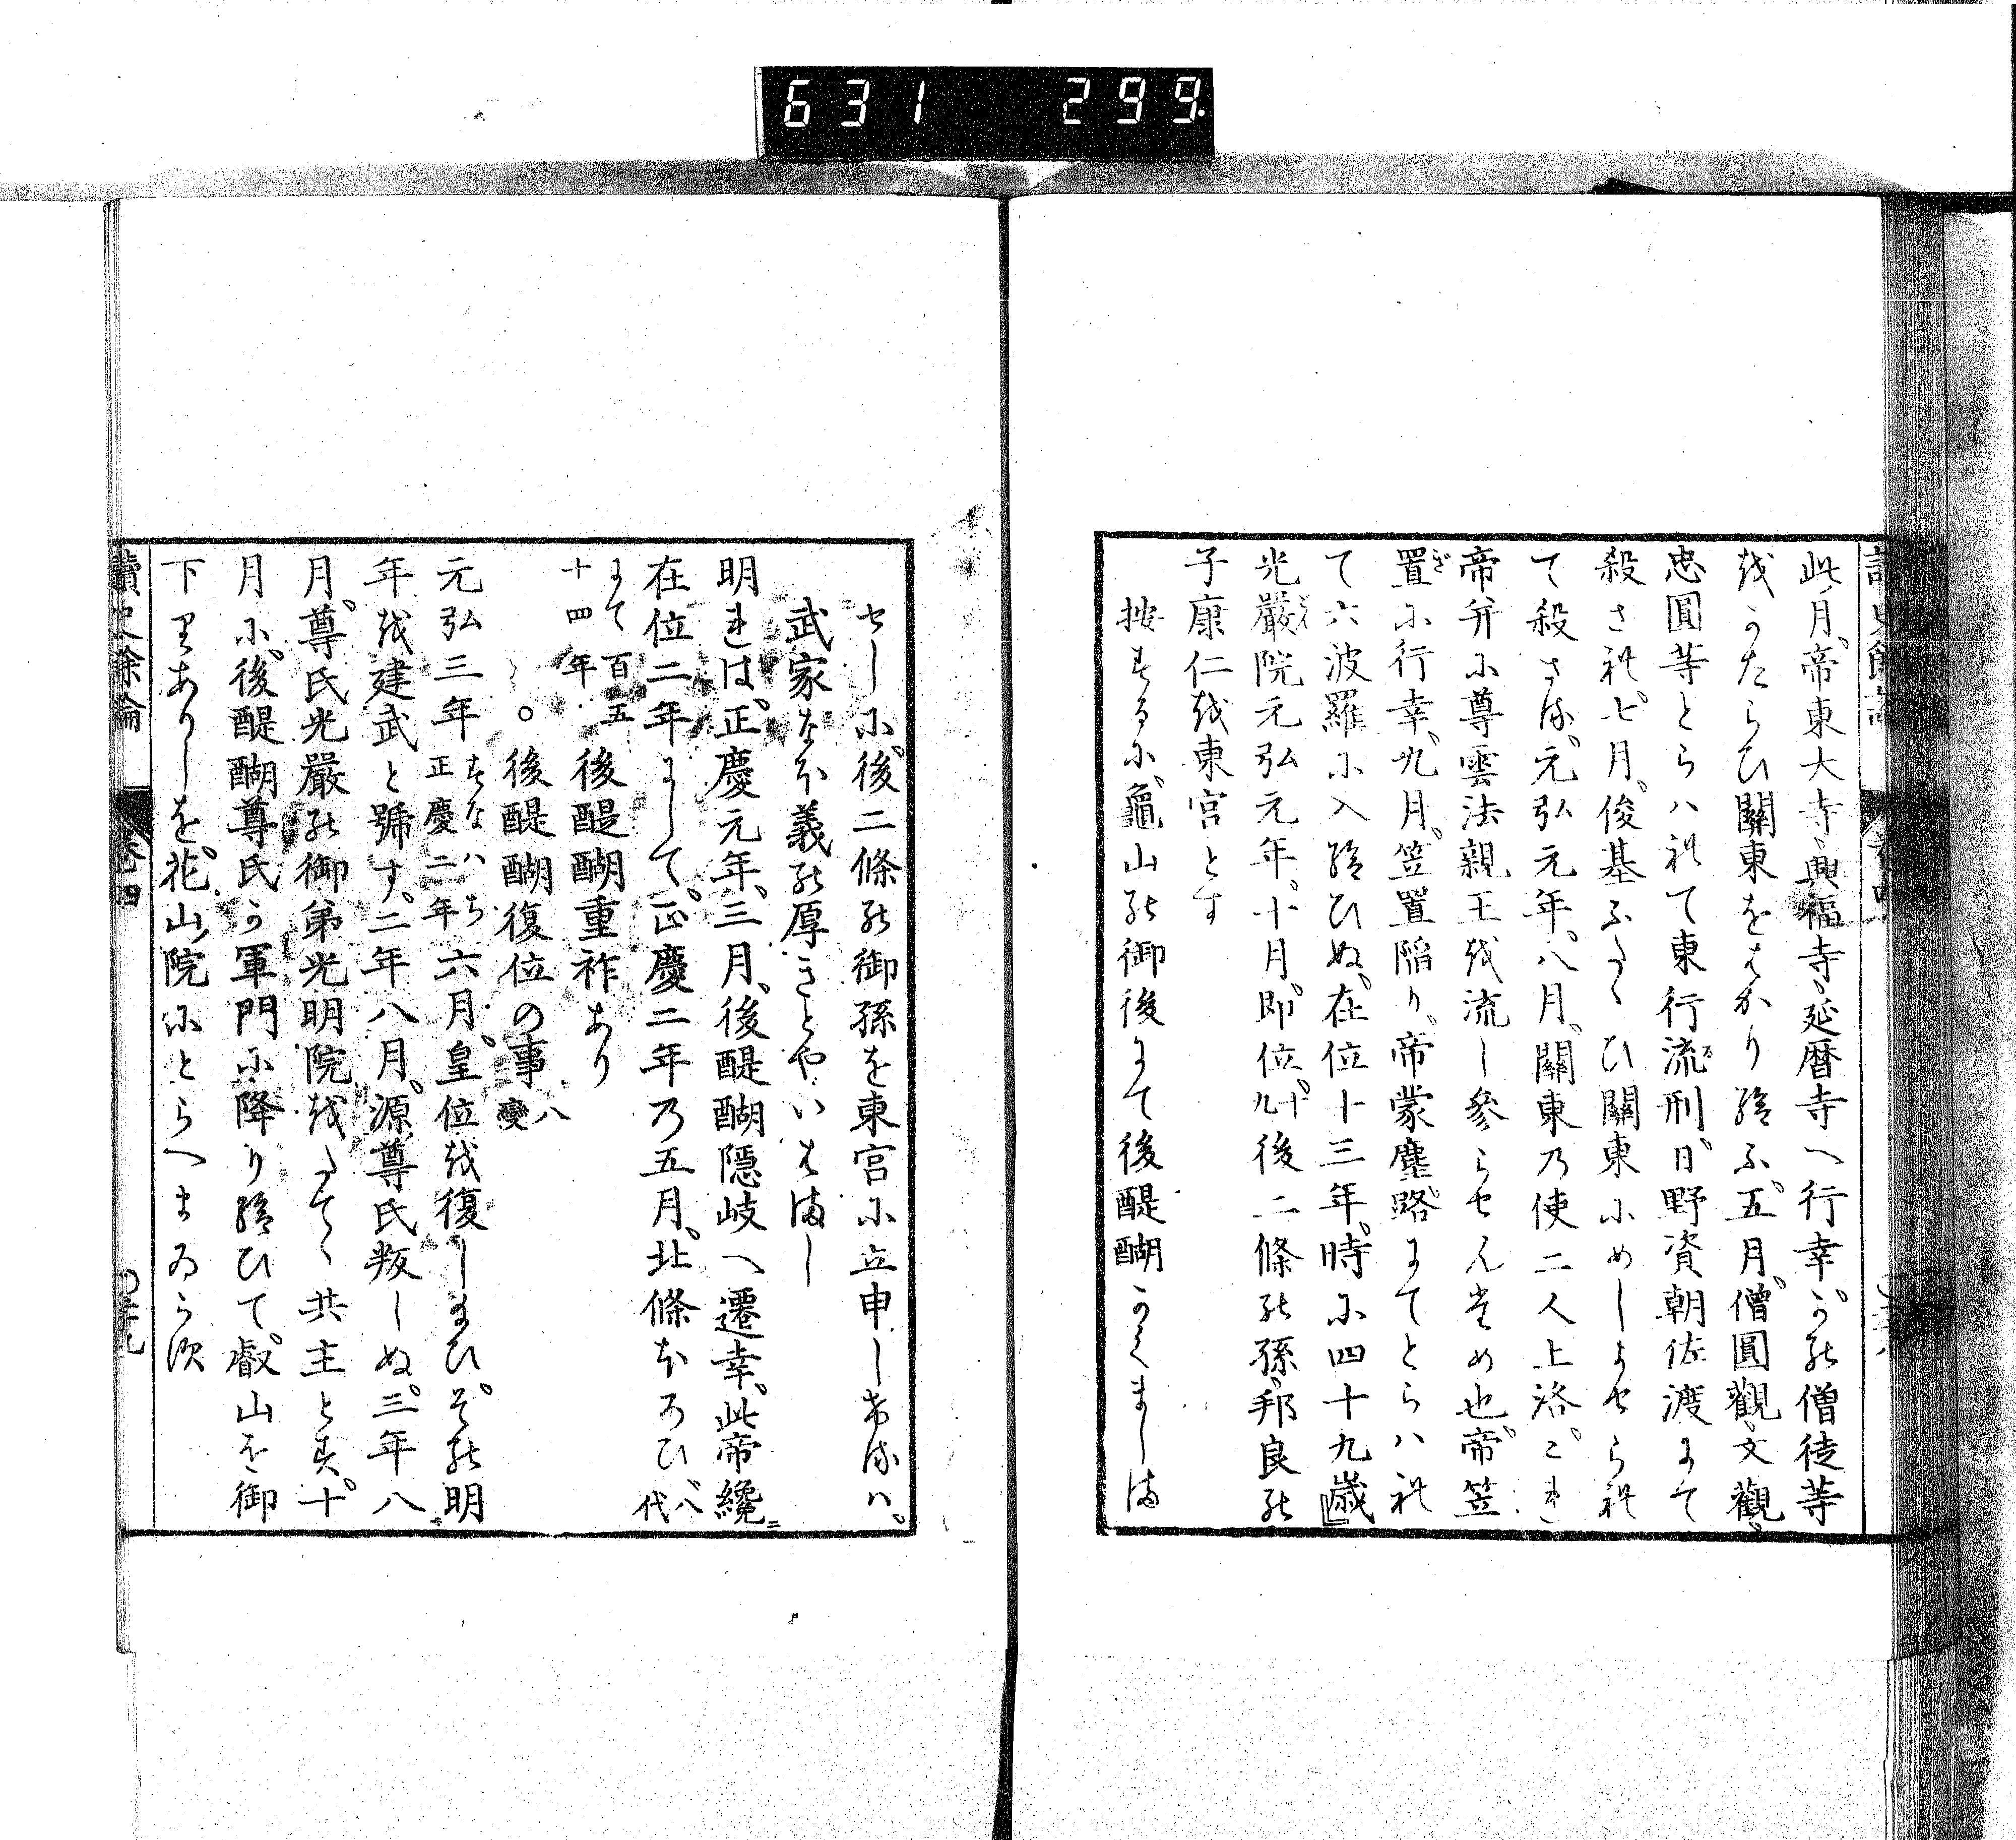 631 299.
此月。帝東大寺、興福寺、延暦寺へ行幸。かの僧徒等
をかたらひ關東をはかり給ふ。五月。僧圓觀、文觀、
忠圓等とらはれて東行流刑。日野資朝佐渡にて
殺され。七月。俊基ふたゝひ關東にめしよせられ
て殺さる。元弘元年。八月。關東の使二人上洛。これ
帝并に尊雲法親王を流し參らせんため也。帝笠
置に行幸。九月。笠置陷り。帝蒙塵路にてとらはれ
て六波羅に入給ひぬ。在位十三年。時に四十九歳
光嚴院元弘元年。十月。即位。十九後二條の孫、邦良の
子康仁を東宮とす
按するに。龜山の御後にて後醍醐かくましま
せしに。後二條の御孫を東宮に立申しけるは。
武家なほ義の厚きとやいはまし
明れは。正慶元年。三月。後醍醐隱岐へ遷幸。此帝纔ニ
在位二年にして。正慶二年の五月。北條ほろひ八代
にて百五十四年後醍醐重祚あり
○後醍醐復位の事八變
元弘三年すなはち正慶二年六月。皇位を復しまひ。その明
年を建武と號す。二年八月。源尊氏叛しぬ。三年八
月。尊氏光嚴の御弟光明院をたてゝ共主とす。十
月に。後醍醐尊氏か軍門に降り給ひて。叡山を御
下りありしを。花山院にとらへまゐらす
讀史餘論 卷四